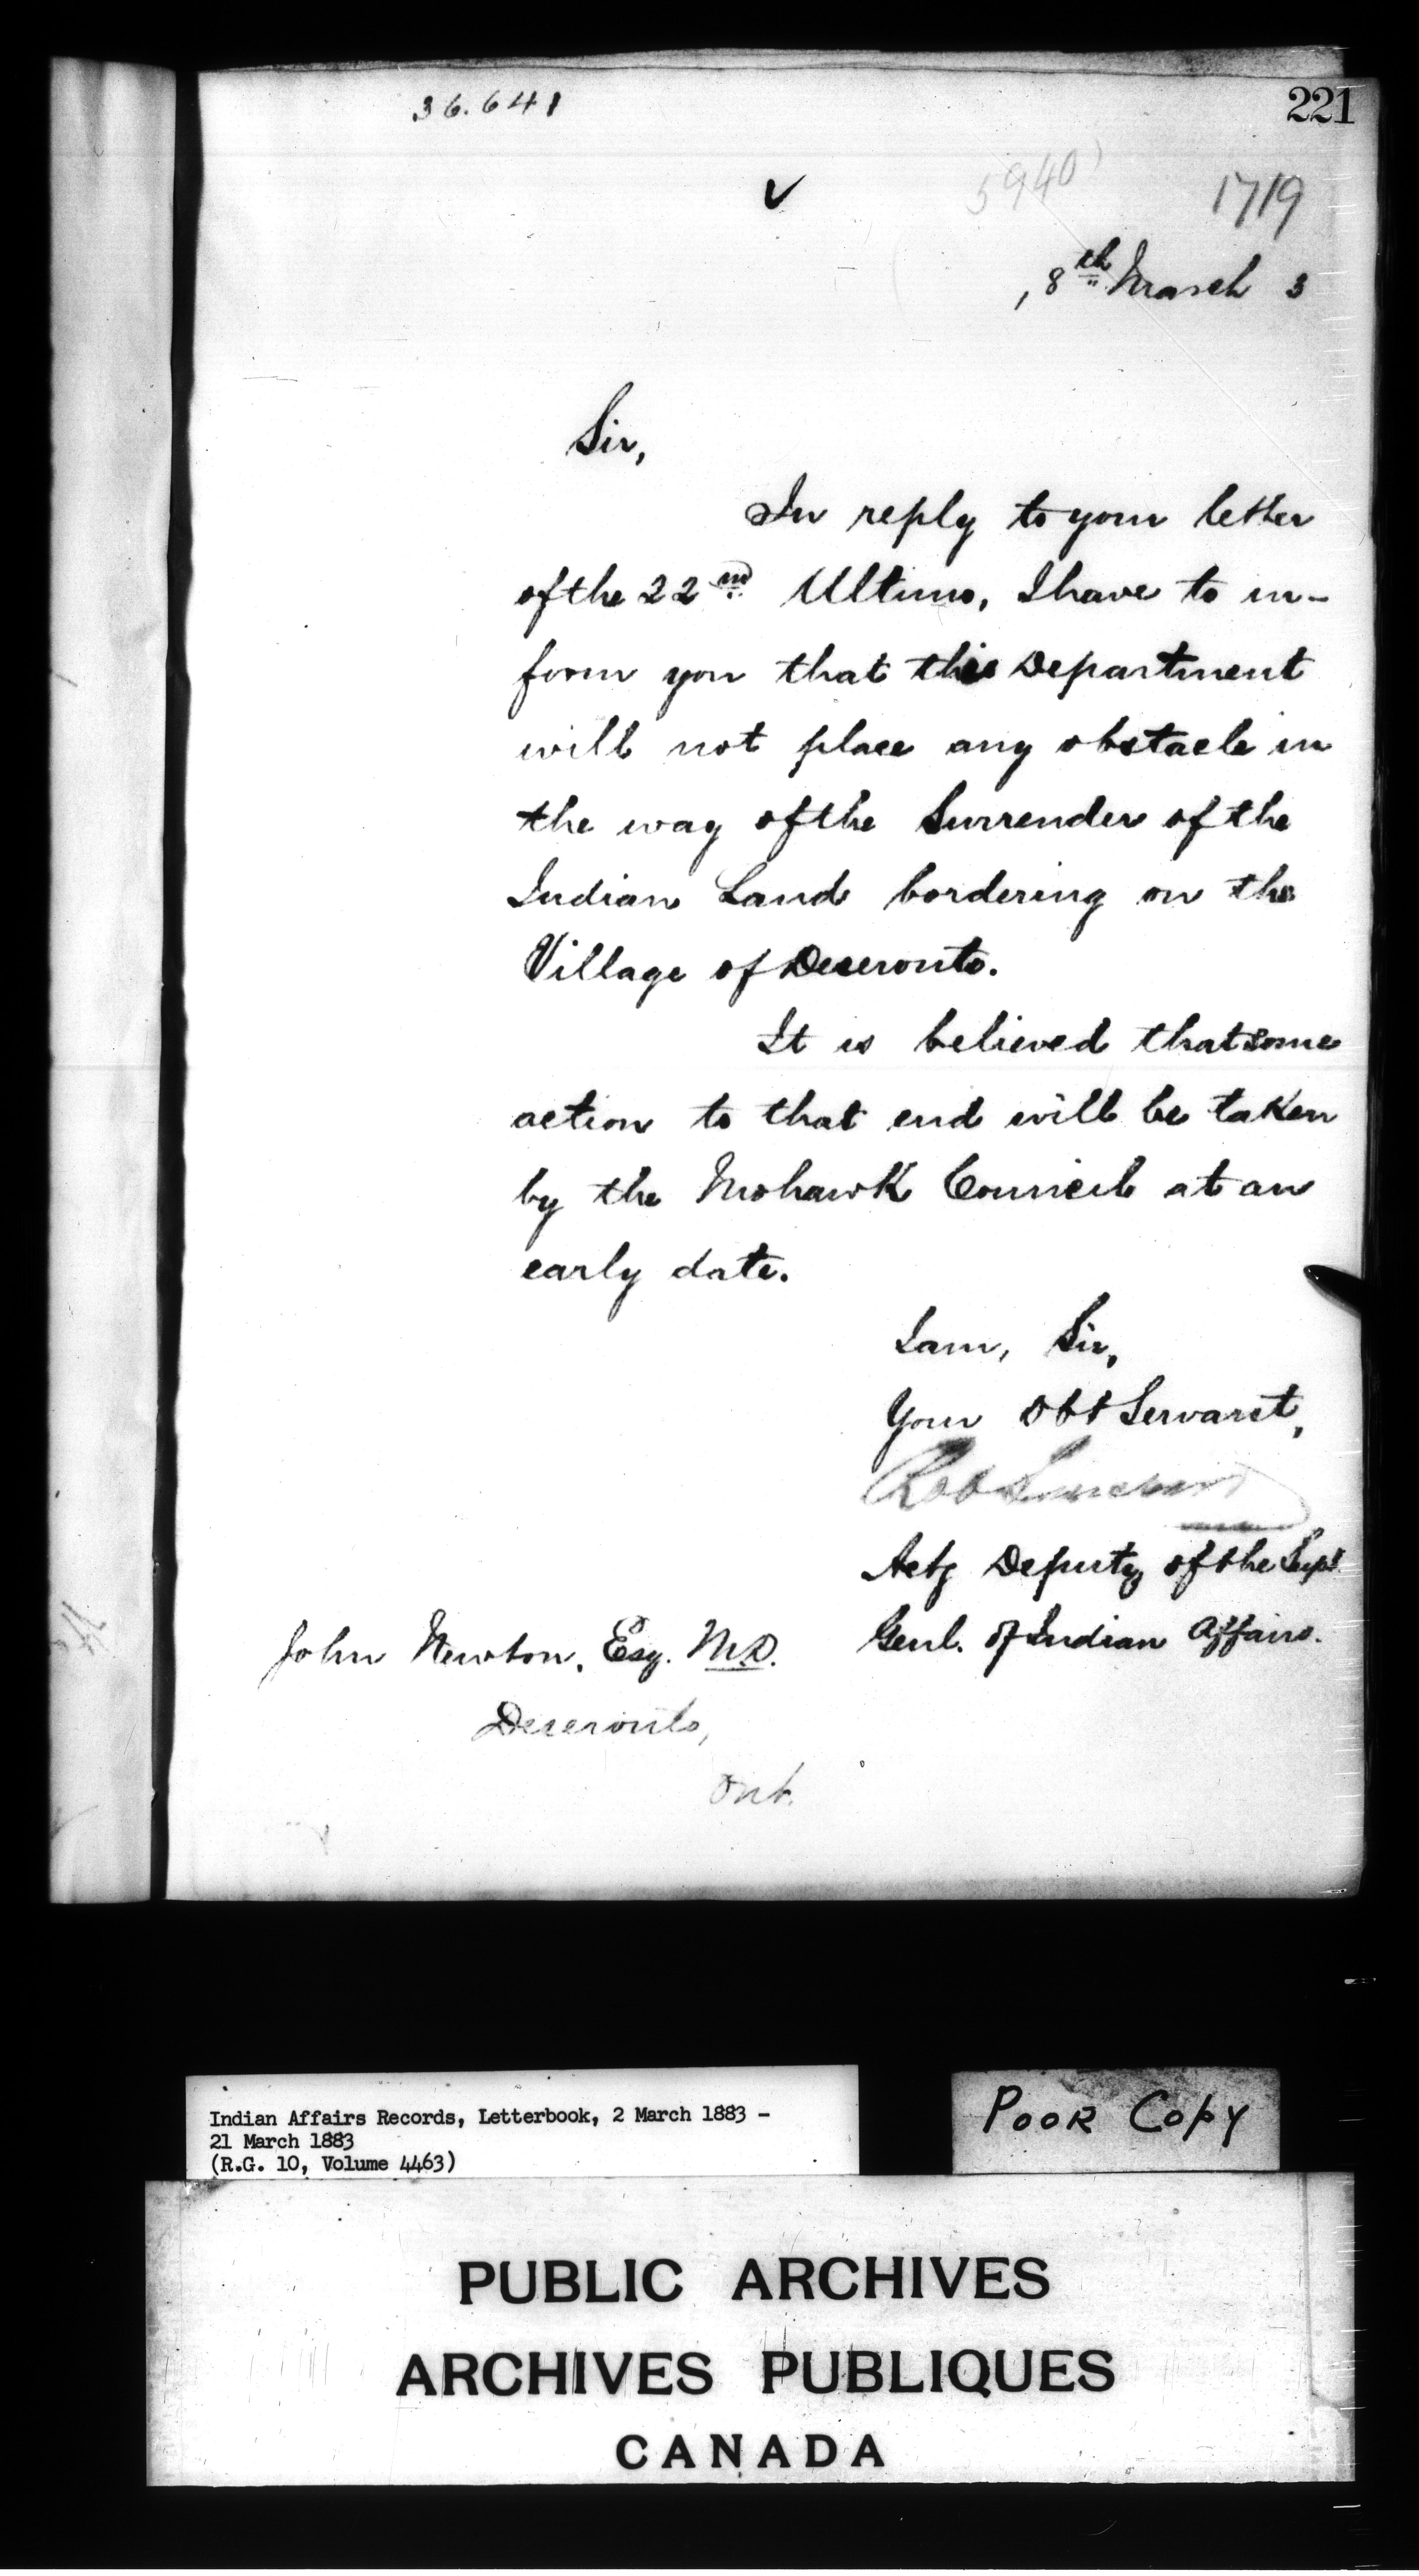 36.641
221
5940
1719
, 8th March 3
Sir,
In reply to your letter
of the 22nd Ultimo, I have to in-
form you that this Department
will not place any obstacle in
the way of the Surrender of the
Indian Land bordering on the
Village of Deseronto.
It is believed that some
action to that end will be taken
by the Mohawk Council at an
early date.
I am, Sir,
Your Obt Servant,
Rob Sinclair
Actg Deputy of the Supt
Genl. of Indian Affairs.
John Newton, Esq. M.D.
Deseronto,
Ont.
Indian Affairs Records, Letterbook, 2 March 1883 -
21 March 1883
(R.G. 10, Volume 4463)
POOR COPY
PUBLIC ARCHIVES
ARCHIVES PUBLIQUES
CANADA